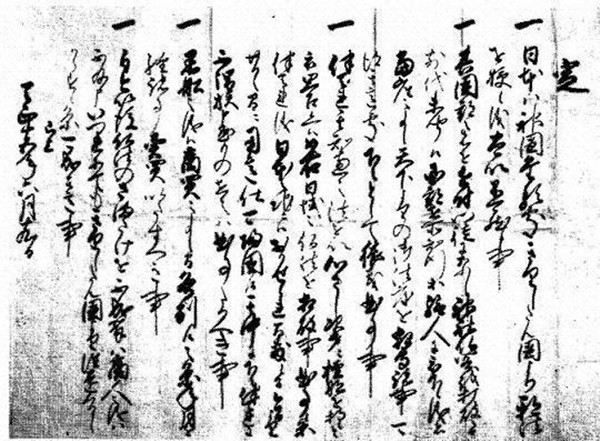 定
一 日本ハ神国たる処きりしたん国より邪法
を授候儀太以不可然候事
一 其国郡之者を近付門徒になし神社仏閣を打破之由
前代未聞候国郡在所知行等給人に被下候儀者
当座之事候天下よりの御法度を相守諸事可
得其意処下々として猥義曲事事
一 伴天連其知恵之法を以心さし次第ニ檀那を持候
と被思召候へハ如右日域之仏法を相破事曲事候条
伴天連儀日本之地ニハおかせられ間敷候間今日より
廿日之間ニ用意仕可帰国候其中に下々伴天連
に不謂族申懸もの在之ハ曲事たるへき事
一 黒船之儀ハ商買之事候間各別候之条年月を
経諸事売買いたすへき事
一 自今以後仏法のさまたけを不成輩ハ商人之儀ハ
不及申いつれにてもきりしたん国より往還くるし
からす候条可成其意事
已上
天正十五年六月十九日